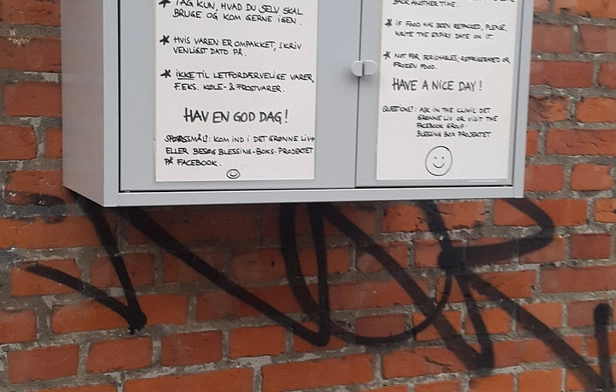 ★ TAG KUN, HVAD DU SELV SKAL
BRUGE OG KOM GERNE IGEN.
★ HVIS VAREN ER OMPAKKET, SKRIV
VENLIGST DATO PÅ.
★ IKKE TIL LETFORDÆRVELIGE VARER,
F.EKS. KØLE- & FROSTVARER.
HAV EN GOD DAG!
SPØRGSMÅL: KOM IND I DET GRØNNE LIV
ELLER BESØG BLESSING-BOKS-PROJEKTET
PÅ FACEBOOK.
BACK ANOTHER TIME.
★ IF FOOD HAS BEEN REPACKED, PLEASE,
WRITE THE EXPIRY DATE ON IT.
★ NOT FOR PERISHABLES, REFRIGERATED OR
FROZEN FOOD.
HAVE A NICE DAY!
QUESTIONS?: ASK IN THE CLINIC DET
GRØNNE LIV OR VISIT THE
FACEBOOK GROUP:
BLESSING BOX PROJEKTET